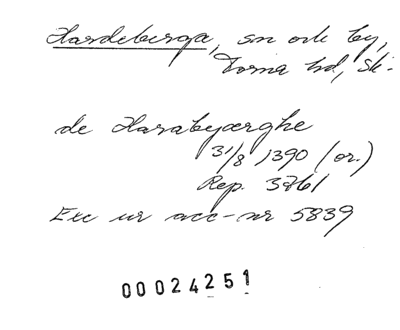 Hardeberga, sn och by,
Torna hd, Sk.
de Harabyærghe
31/8 1390 (or.)
Rep. 3761
Exc ur acc-nr 5839
00024251